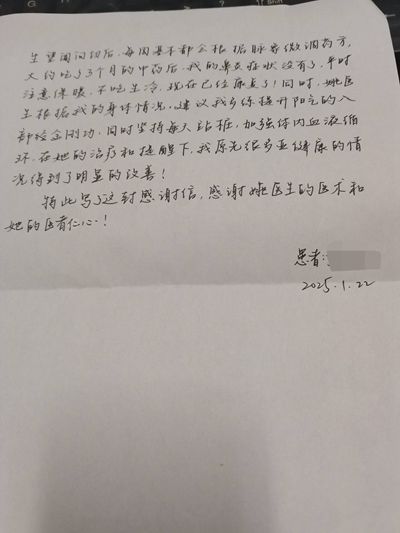 生望闻问切后，每周基本都会根据脉象微调药方，
大约吃了3个月的中药后，我的鼻炎症状没有了，平时
注意保暖，不吃生冷，现在已经康复了！同时，姚医
生根据我的身体情况，建议我多练提升阳气的八
部金刚功，同时坚持每天站桩，加强体内血液循
环，在她的治疗和提醒下，我原先很多亚健康的情
况得到了明显的改善！
特此写了这封感谢信，感谢姚医生的医术和
她的医者仁心！
患者：
2025.1.22